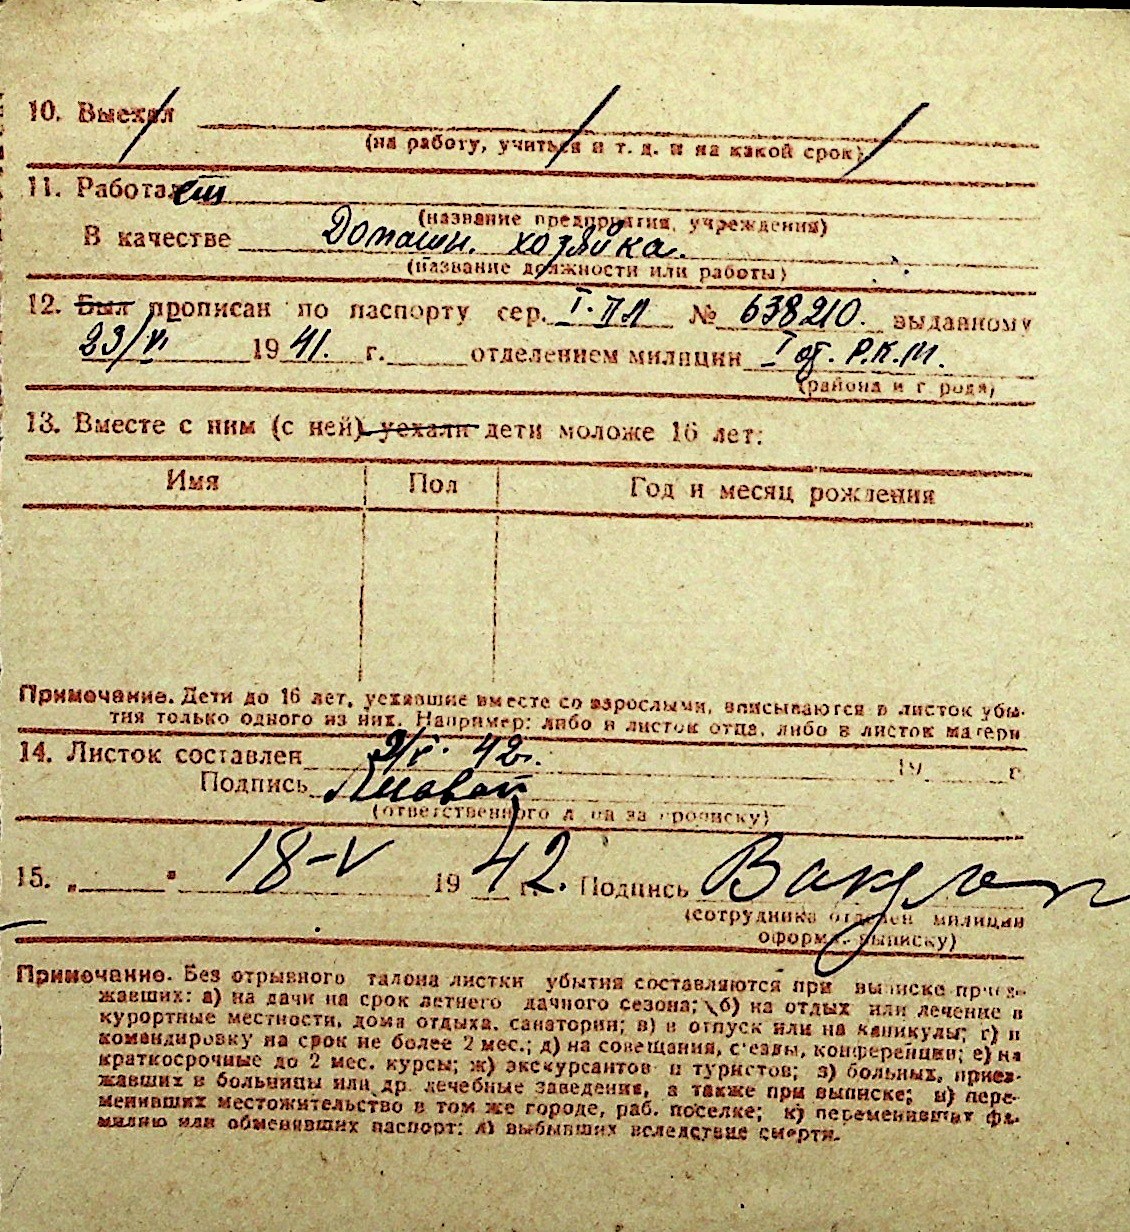 10. Выехал
(на работу, учиться и т. д. и на какой срок)
11. Работает
(название предприятия, учреждения)
В качестве Домашн. хозяйка.
(название должности или работы)
12. Был прописан по паспорту сер. I-ПЛ № 638210. выданному
23/VI 1941. г. отделением милиции I от. Р.К.М.
(района и города)
13. Вместе с ним (с ней) уехали дети моложе 16 лет:
Имя Пол Год и месяц рождения
Примечание. Дети до 16 лет, уехавшие вместе со взрослыми, вписываются в листок убы-
тия только одного из них. Например: либо в листок отца, либо в листок матери
14. Листок составлен 2/V. 42г. 19 г.
Подпись
(ответственного лица за прописку)
15. „ " 18-V 1942 г. Подпись
(сотрудника отделен. милиции
оформ. выписку)
Примечание. Без отрывного талона листки убытия составляются при выписке приез-
жавших: а) на дачи на срок летнего дачного сезона; б) на отдых или лечение в
курортные местности, дома отдыха, санатории; в) в отпуск или на каникулы; г) в
командировку на срок не более 2 мес.; д) на совещания, съезды, конференции; е) на
краткосрочные до 2 мес. курсы; ж) экскурсантов и туристов; з) больных, приез-
жавших в больницы или др. лечебные заведения, а также при выписке; и) пере-
менивших местожительство в том же городе, раб. поселке; к) переменивших фа-
милию или обменявших паспорт; л) выбывших вследствие смерти.